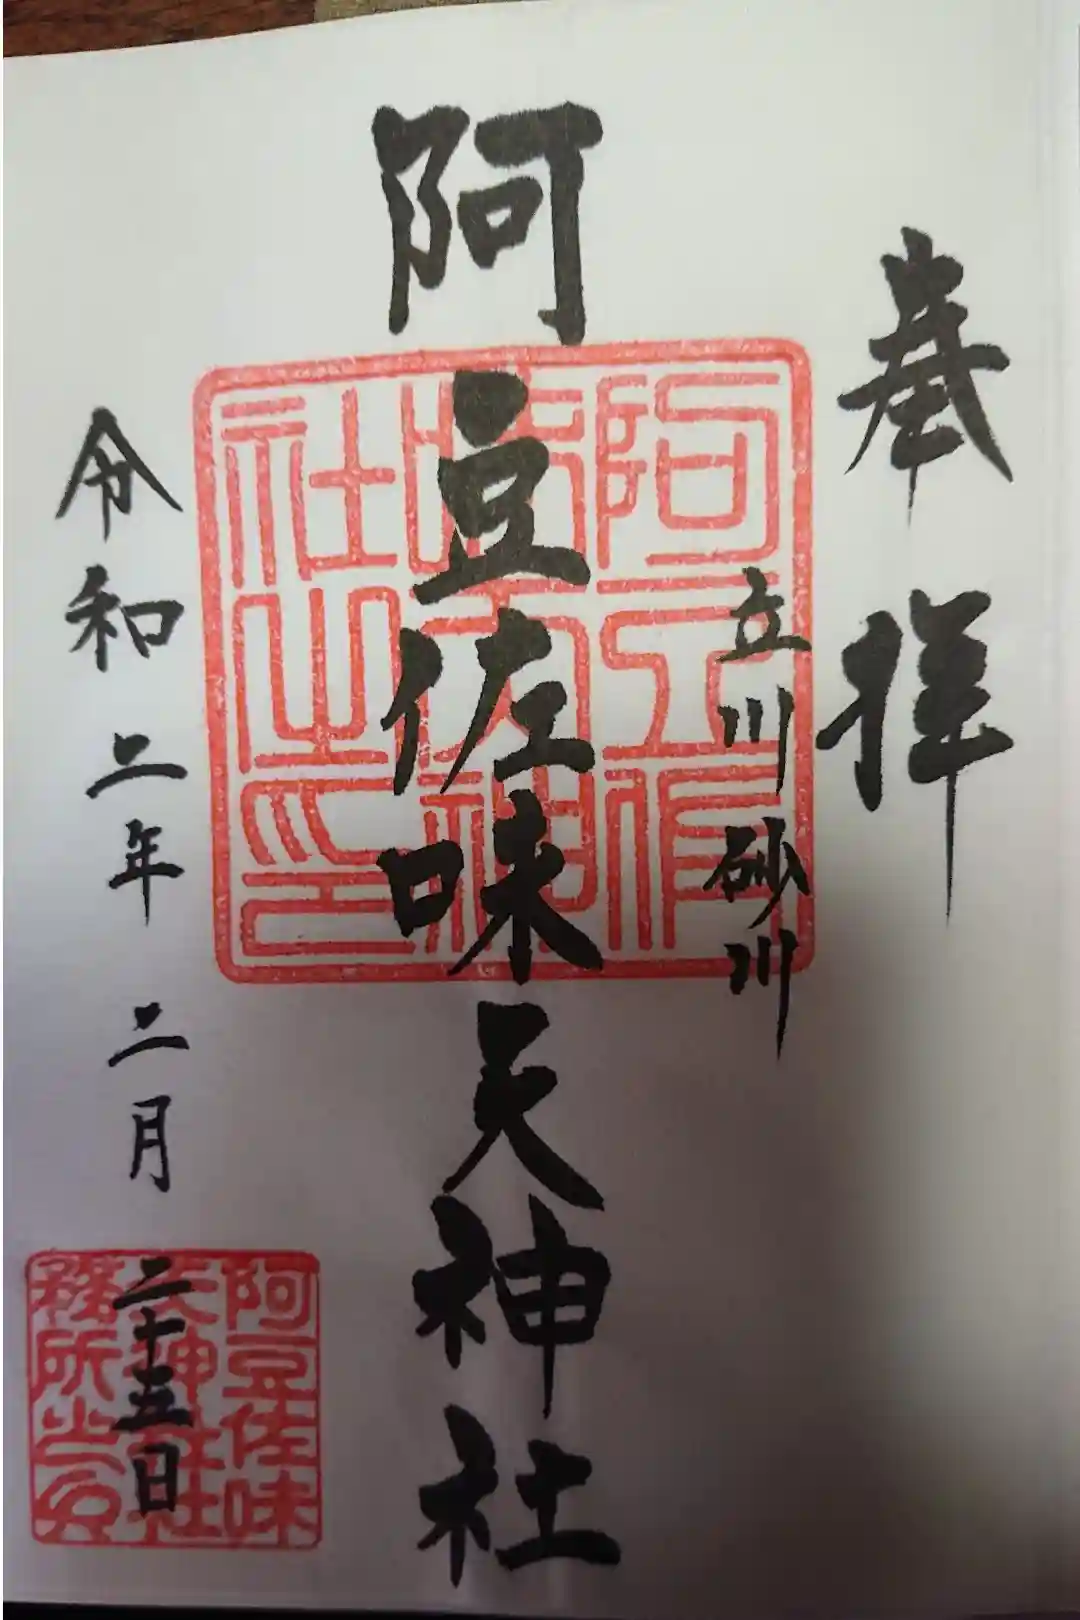 奉拝
立川砂川
阿豆佐味天神社
令和二年二月二十五日
阿豆佐
味天神
社之印
阿豆佐味
天神社
務所之印